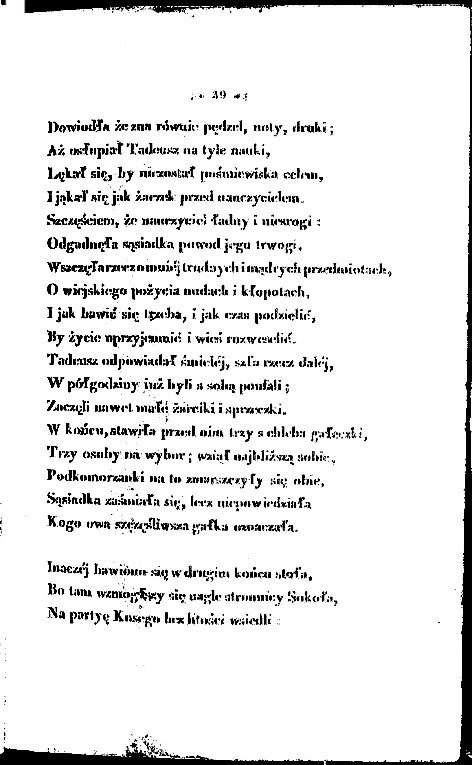 39
Dowiodła że zna równie pędzel, noty, druki;
Aż osłupiał Tadeusz na tyle nauki,
Lękał się, by niezostał pośmiewiska celem,
I jąkał się jak żaczek przed nauczycielem.
Szczęściem, że nauczyciel ładny i niesrogi:
Odgadnęła sąsiadka powod jego trwogi,
Wszczęła rzecz o mniéj trudnych i mądrych przedmiotach,
O wiejskiego pożycia nudach i kłopotach,
I jak bawić się trzeba, i jak czas podzielić,
By życie uprzyjemnić i wieś rozweselić.
Tadeusz odpowiadał śmieléj, szła rzecz daléj,
W półgodziny już byli z sobą poufali;
Zaczęli nawet małé żarciki i sprzeczki.
W końcu, stawiła przed nim trzy z chleba gałeczki,
Trzy osoby na wybor; wziął najbliższą sobie,
Podkomorzanki na to zmarszczyły się obie,
Sąsiadka zaśmiała się, lecz niepowiedziała
Kogo owa szczęśliwsza gałka oznaczała.
Inaczéj bawiono się w drugim końcu stoła,
Bo tam wzmogłszy się nagle stronnicy Sokoła,
Na partyę Kusego bez litości wsiedli: